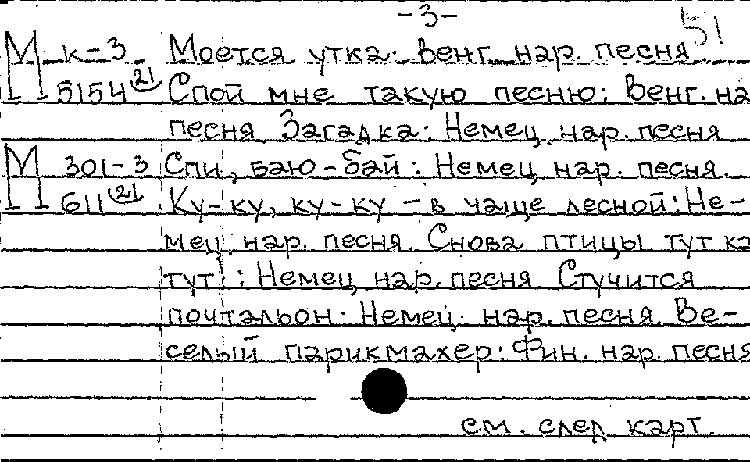 -3- 51
М к-3 Моется утка: Венг. нар. песня
5154(21) Спой мне такую песню: Венг. на
песня Загадка: Немец. нар. песня
М 301-3 Спи, баю-бай: Немец. нар. песня.
611(21) Ку-ку, ку-ку - в чаще лесной: Не-
мец. нар. песня. Снова птицы тут ка
тут!: Немец. нар. песня Стучится
почтальон: Немец. нар. песня Ве-
селый парикмахер: Фин. нар. песня
см. след карт.